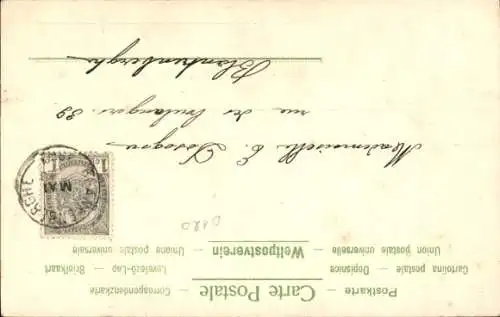 Postkarte — Carte Postale — Correspondenzkarte
Cartolina postale — Dopisnice — Levelező-Lap — Briefkaart
Union postale universelle — Weltpostverein — Unione postale universale
0120
1 1
BLANKENBERGHE
MAI
Mademoiselle E.
rue des Boulangers. 39
Blankenberghe